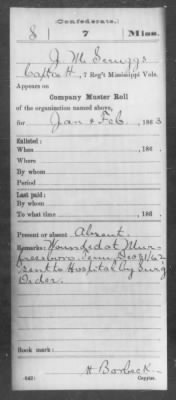 Confederate.
S 7 Miss.
J. M. Scruggs
Capt Co H, 7 Reg't Mississippi Vols.
Appears on
Company Muster Roll
of the organization named above,
for Jan & Feb, 1863
Enlisted:
When , 186 .
Where
By whom
Period
Last paid:
By whom
To what time , 186 .
Present or absent Absent.
Remarks: Wounded at Mur-
freesboro Tenn, Dec 31/62
sent to Hospital by Surg
Order.
Book mark:
(642) H Borbeck
Copyist.